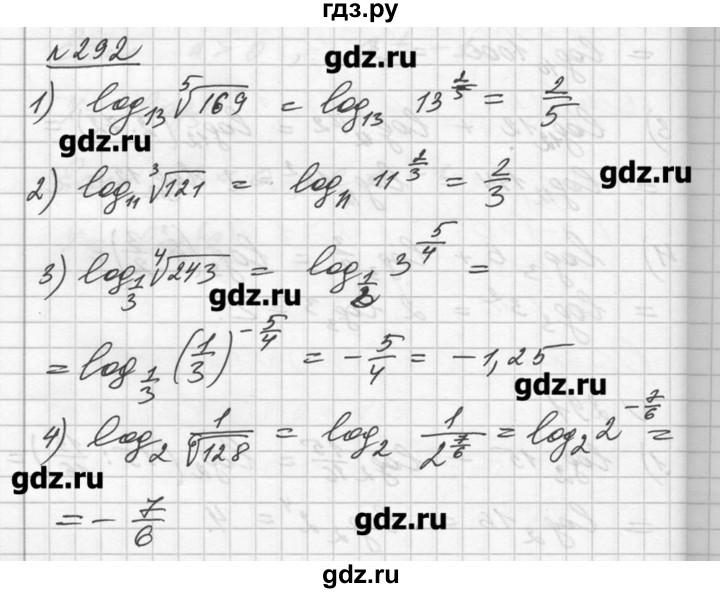 гдз.ру
№292
gdz.ru
1) log₁₃ ⁵√169 = log₁₃ 13^(2/5) = 2/5
gdz.ru
gdz.ru
2) log₁₁ ³√121 = log₁₁ 11^(2/3) = 2/3
3) log_(1/3) ⁴√243 = log_(1/3) 3^(5/4) =
gdz.ru
= log_(1/3) (1/3)^(-5/4) = -5/4 = -1,25
gdz.ru
4) log₂ 1/⁶√128 = log₂ 1/2^(7/6) = log₂ 2^(-7/6) =
gdz.ru
= -7/6
gdz.ru
gdz.ru